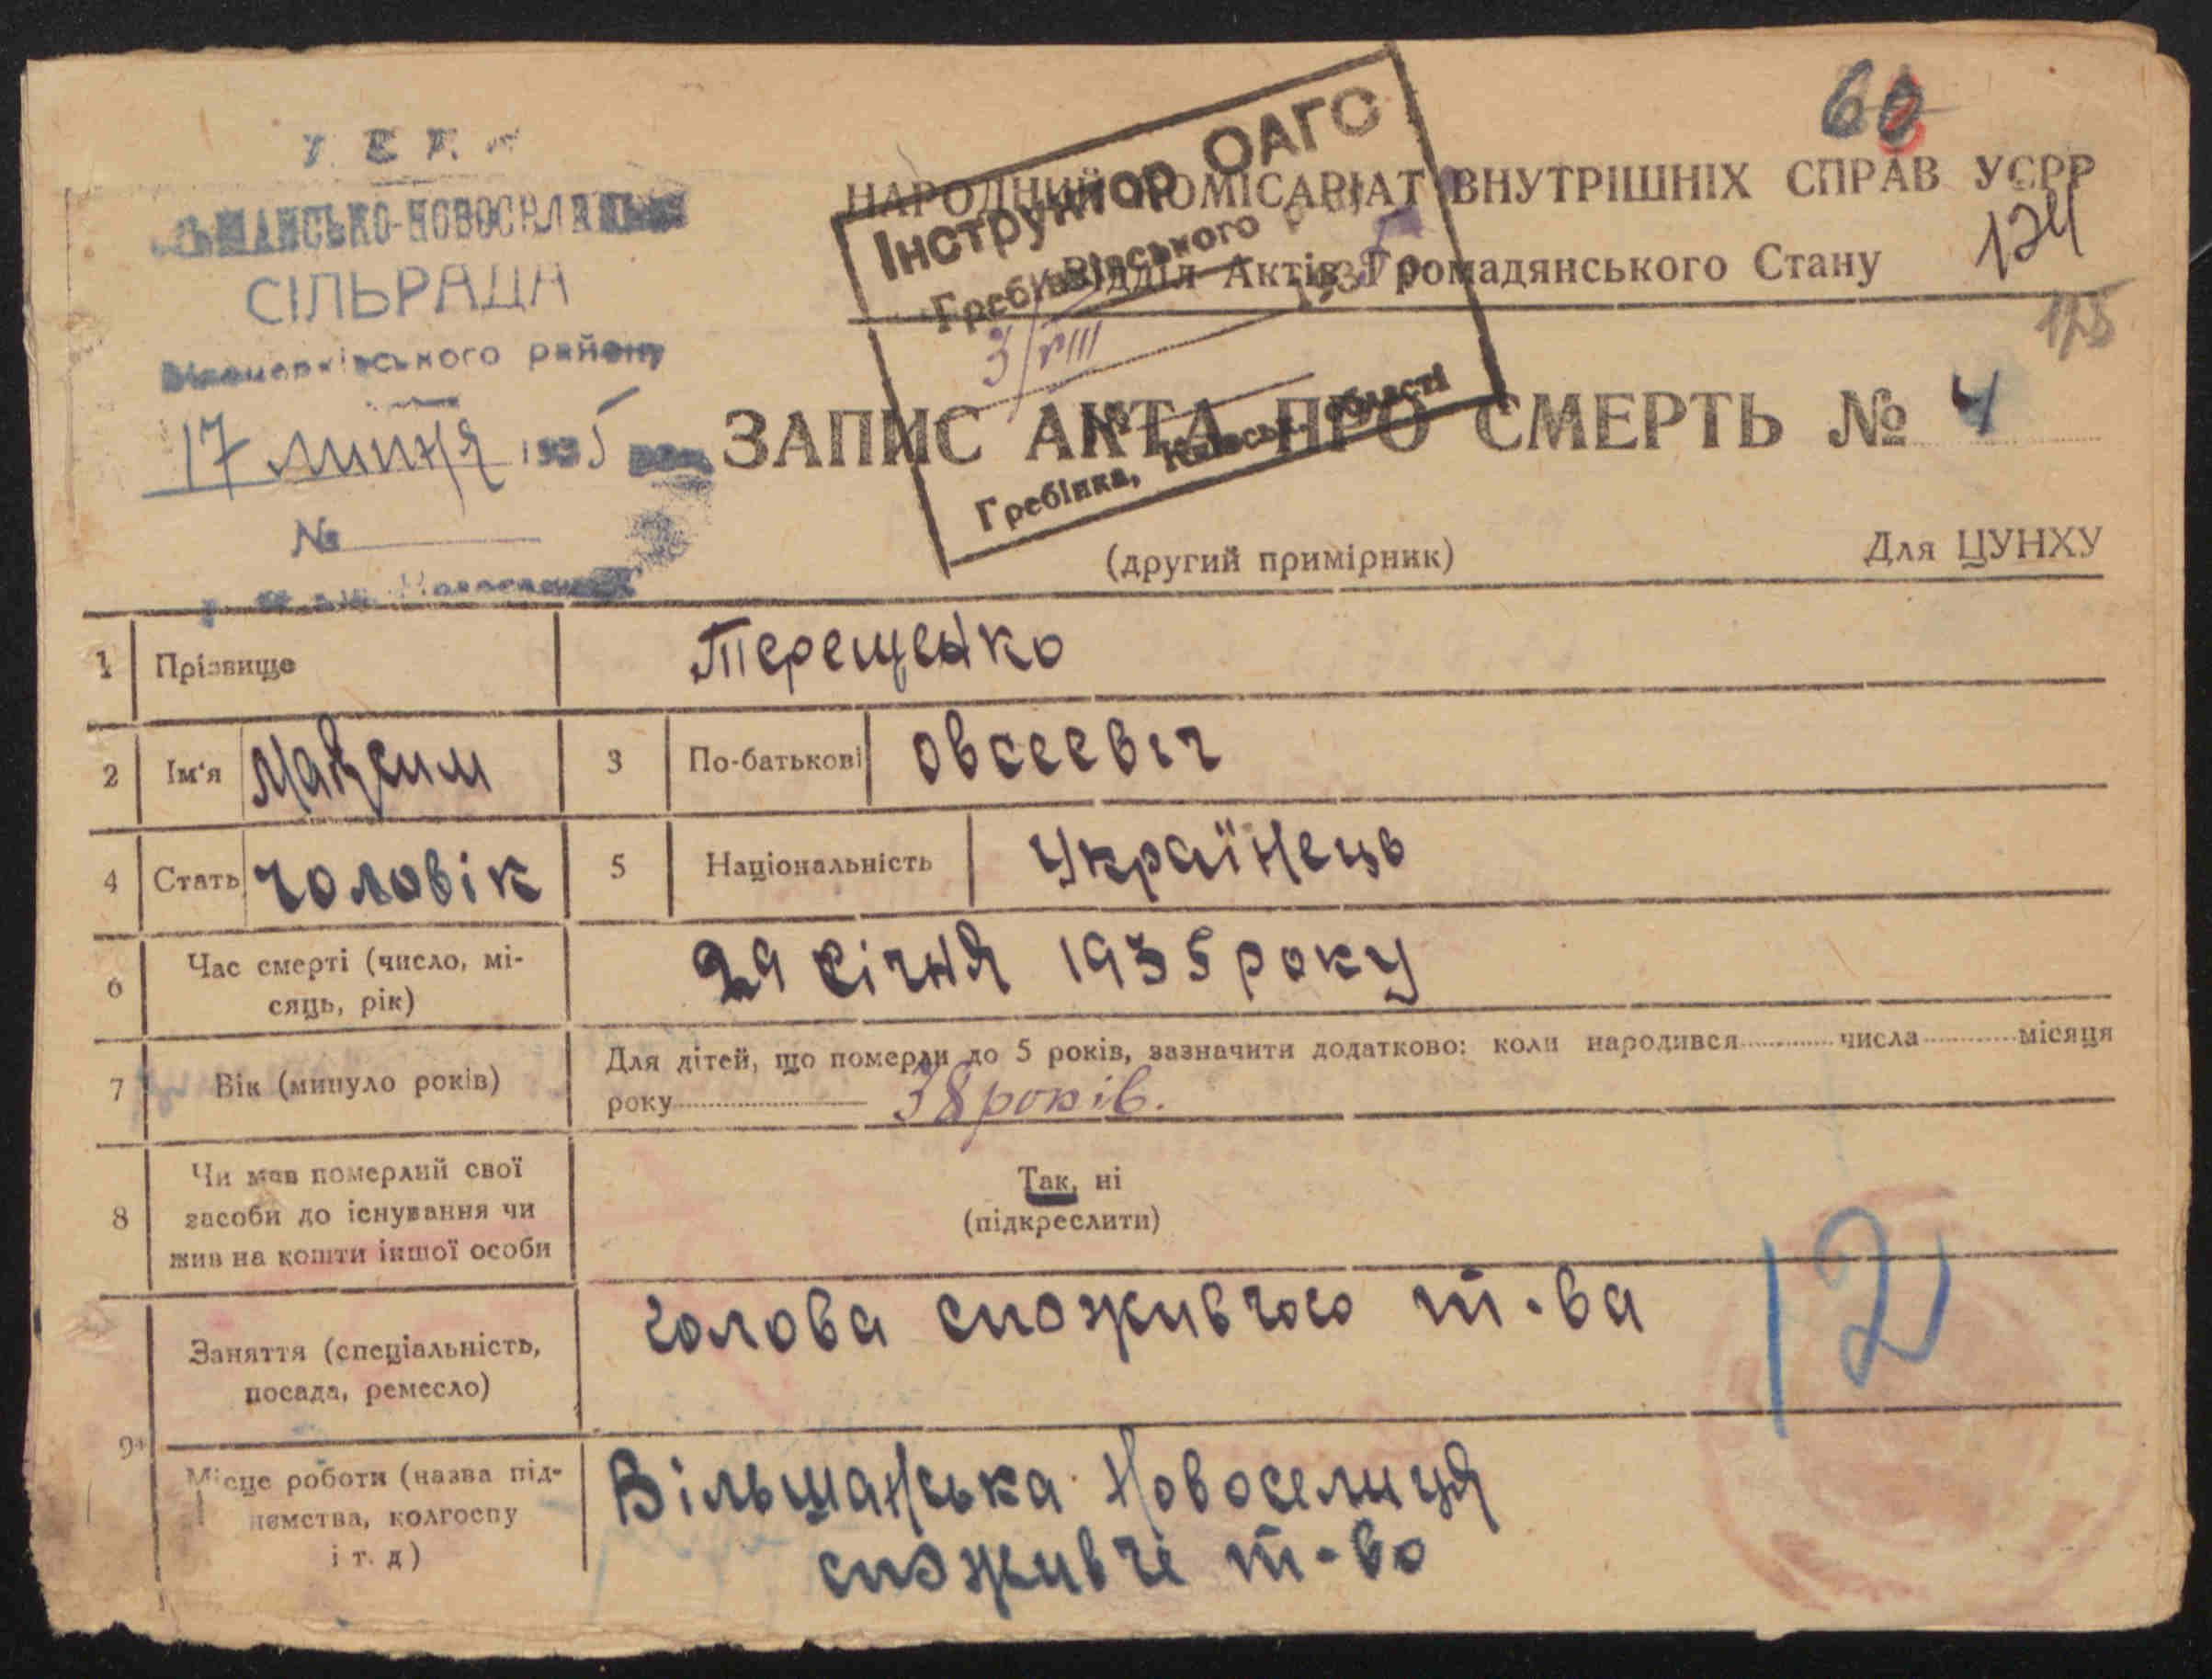 У С Р Р
СІЛЬРАДА
Білоцерківського району
17 липня 1935
№
60
НАРОДНИЙ КОМІСАРІАТ ВНУТРІШНІХ СПРАВ УСРР
124
Відділ Актів Громадянського Стану
125
Інструктор ОАГС
Гребінківського р
3/VIII 193
Гребінка, Київськ. області
ЗАПИС АКТА ПРО СМЕРТЬ № 4
(другий примірник) Для ЦУНХУ
1 Прізвище Терещенко
2 Ім'я Максим 3 По-батькові Овсеевіч
4 Стать чоловік 5 Національність Українець
6 Час смерті (число, мі-
сяць, рік) 29 січня 1935 року
7 Вік (минуло років) Для дітей, що померли до 5 років, зазначити додатково: коли народився числа місяця
року 38 років.
8 Чи мав померлий свої
засоби до існування чи
жив на кошти іншої особи
Так, ні
(підкреслити)
12
9 Заняття (спеціальність,
посада, ремесло) голова споживчого т-ва
Місце роботи (назва під-
ємства, колгоспу
і т. д)
Вільшанська Новоселиця
споживче т-во